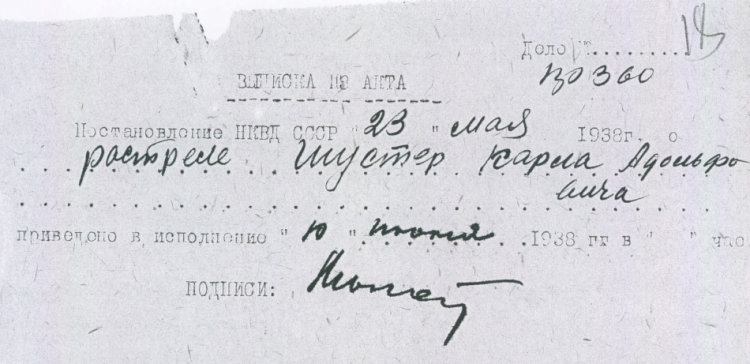 Дело №.........
ВЫПИСКА ИЗ АКТА
Постановление НКВД СССР "23" мая 1938г. о
расстреле Шустер Карла Адольфо
вича
приведено в исполнение "10" июня 1938 гг в " " час
ПОДПИСИ: